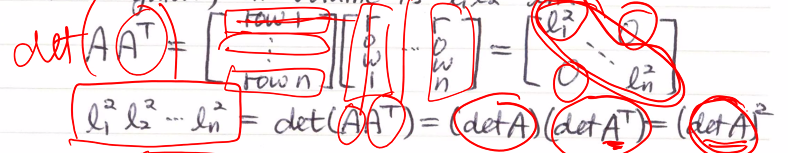 det(AAᵀ) = [row 1 ⋮ row n] [row 1 ⋯ row n] = [l₁² 0 ⋱ 0 lₙ²]
l₁² l₂² ⋯ lₙ² = det(AAᵀ) = (det A)(det Aᵀ) = (det A)²